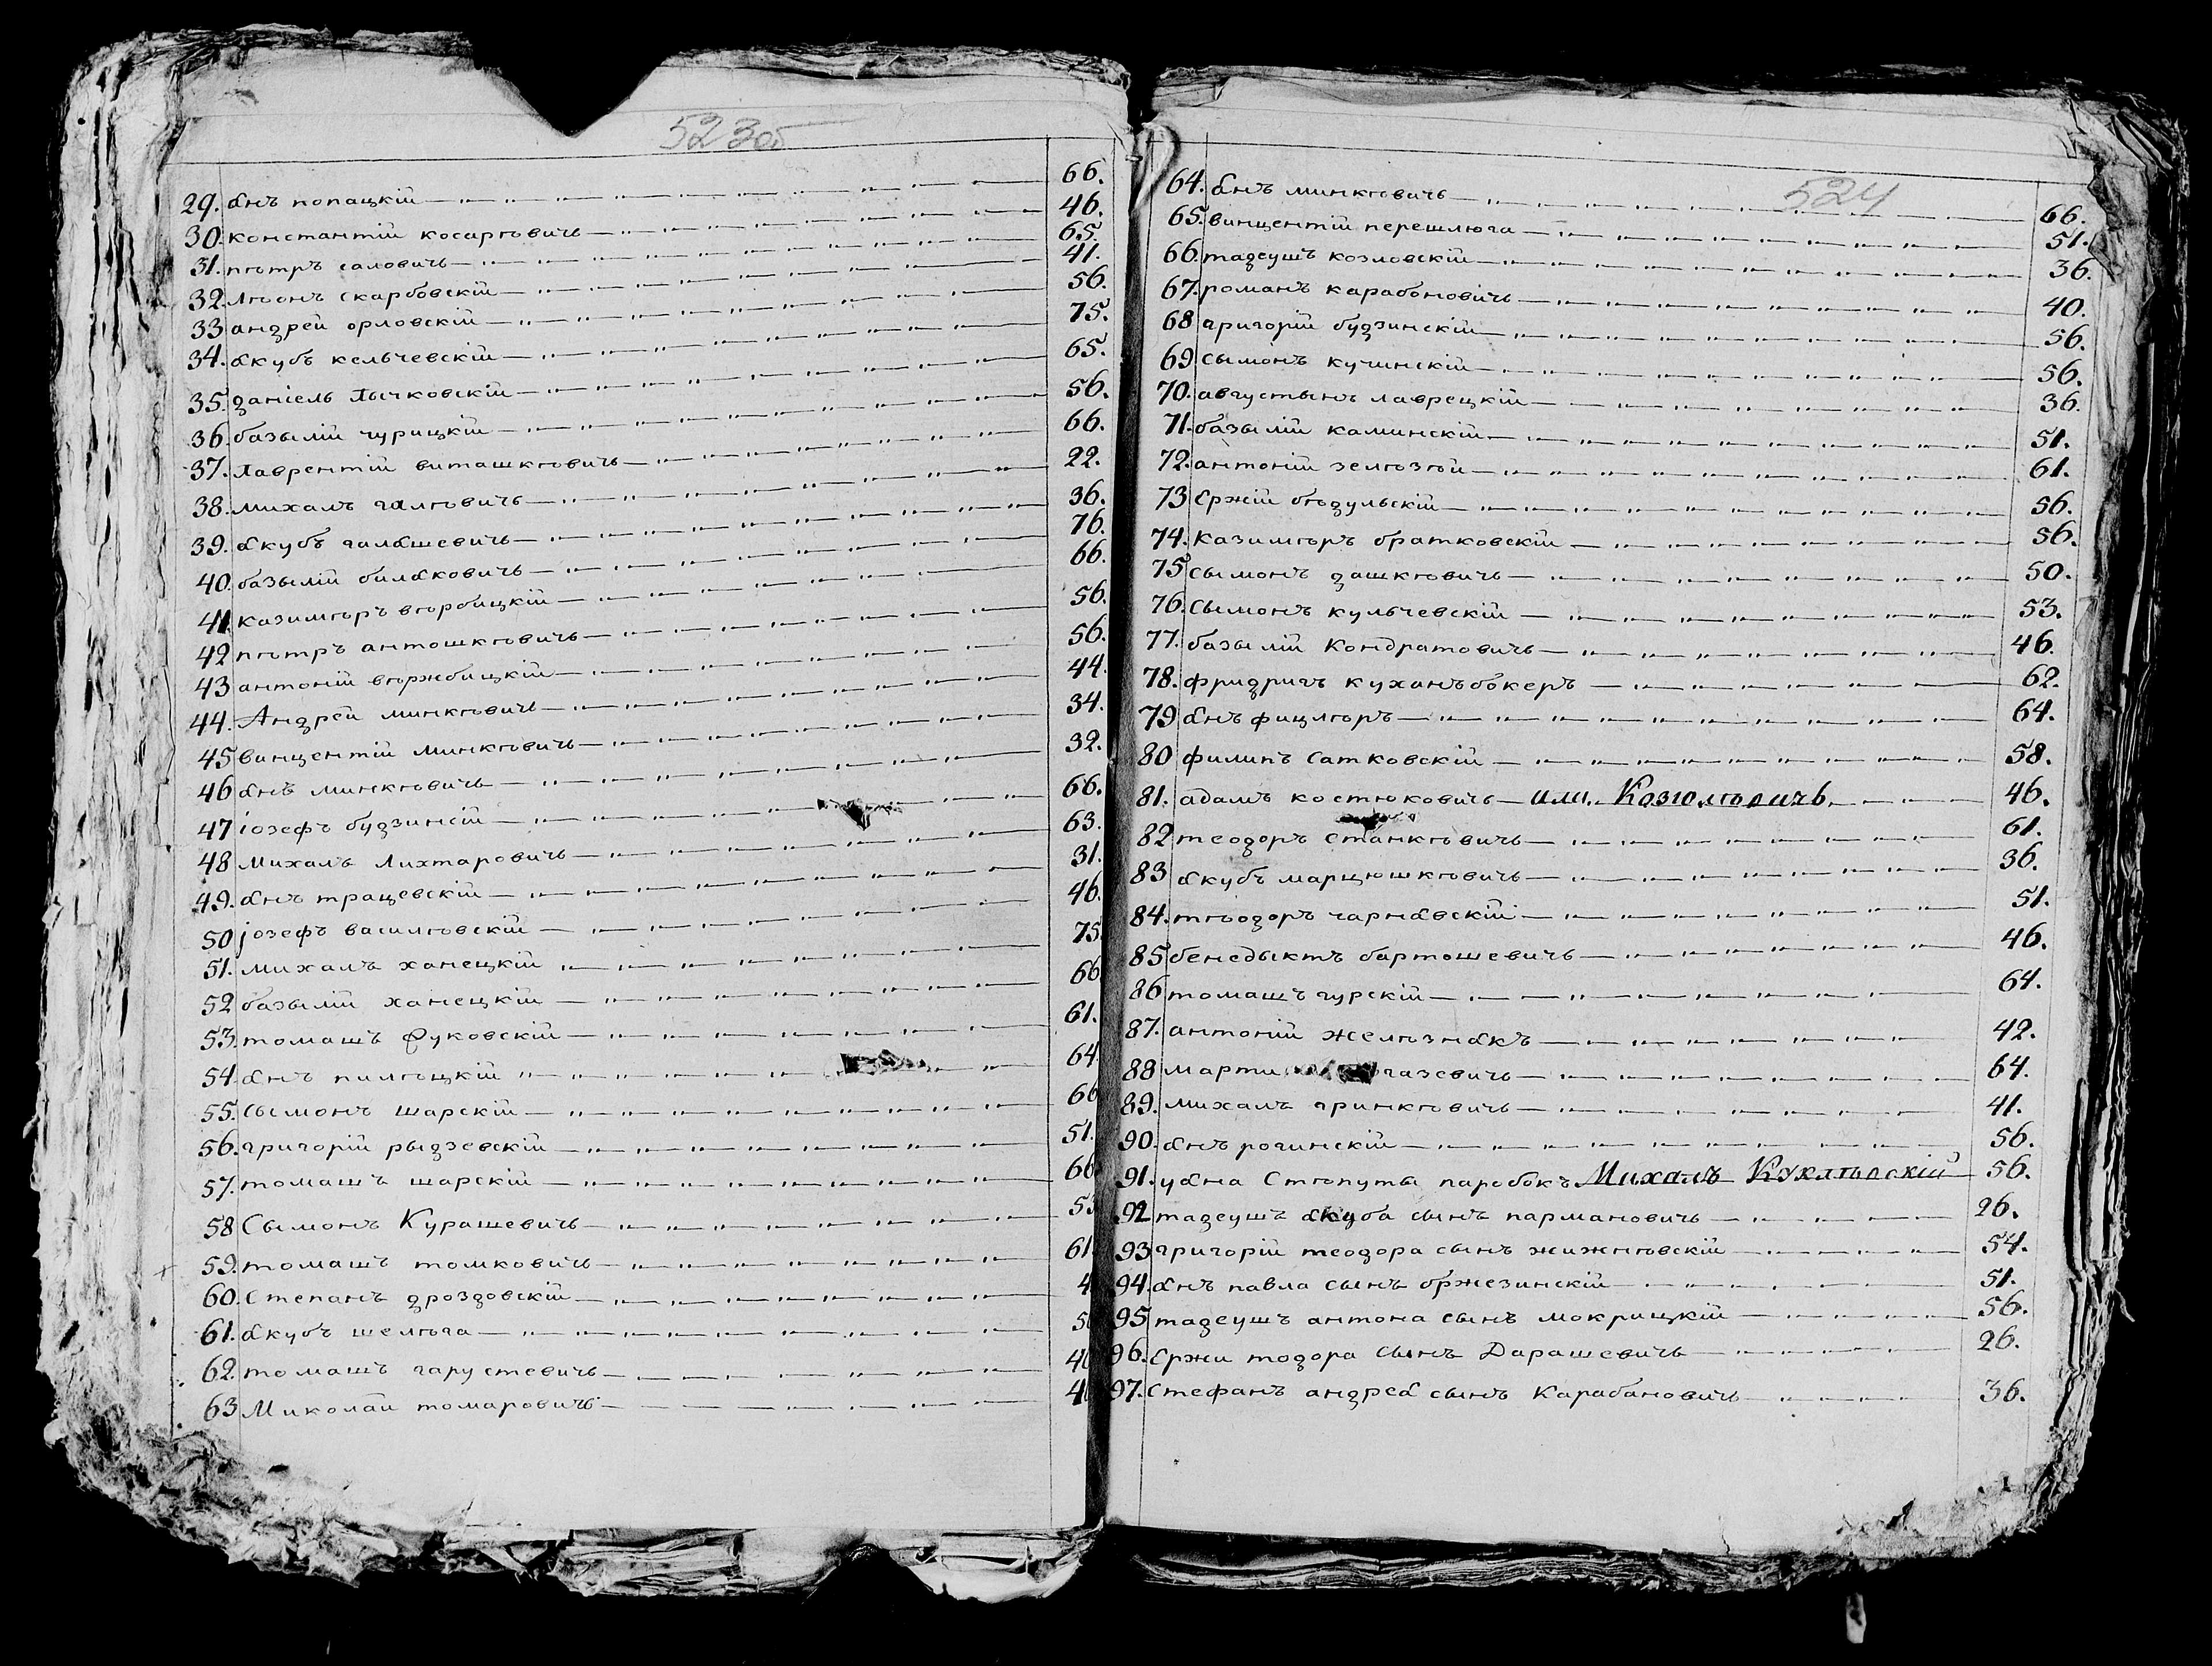 523об
29. янъ попацкій 66.
30. константій косарѣвичъ 46.
31. пѣтръ саловичъ 65.
32. лѣонъ скарбовскій 41.
33 андрей орловскій 56.
34. якубъ кельчевскій 75.
35. даніель лычковскій 65.
36. базылій чурицкій 56.
37. лаврентій виташкѣвичъ 66.
38. михалъ галѣвичъ 22.
39. якубъ галяшевичъ 36.
40. базылій биляковичъ 76.
41. казимѣръ вѣрбицкій 66.
42 пѣтръ антошкѣвичъ 56.
43 антоній вѣржбицкій 56.
44. Андрей минкѣвичъ 44.
45 винцентій минкѣвичъ 34.
46 янъ минкѣвичъ 32.
47 іозефъ будзинсій 66.
48 михалъ лихтаровичъ 63.
49. янъ трацевскій 31.
50 јозефъ василѣвскій 46.
51. михалъ ханецкій 75
52 базылій ханецкій 66
53. томашъ фуковскій 61.
54. янъ пилѣцкій 64
55. сымонъ шарскій 66
56. григорій рыдзевскій 51.
57. томашъ шарскій 66
58 Сымонъ Курашевичъ 53
59. томашъ томковичъ 61
60. степанъ дроздовскій 4
61. якубъ шелѣга 5
62. томашъ гарустевичъ 4
63 Миколай томаровичъ 4
524
64. янъ минкѣвичъ 66.
65. винцентій перешлюга 51.
66. тадеушъ козловскій 36.
67. романъ карабоновичъ 40.
68 григорій будзинскій 56.
69 сымонъ кучинскій 56.
70. августынъ лаврецкій 36.
71. базылій каминскій 51.
72. антоній зелѣзѣй 61.
73 Ержій бѣдульскій 56.
74. казимѣръ братковскій 56.
75 сымонъ дашкѣвичъ 50.
76. сымонъ кульчевскій 53.
77. базылій Кондратовичъ 46.
78. фридригъ куханъбокеръ 62.
79 янъ фицлѣръ 64.
80 филипъ сатковскій 58.
81. адамъ костюковичъ или Козюлѣвичъ 46.
82 теодоръ станкѣвичъ 61.
83 якубъ марцюшкѣвичъ 36.
84. тѣодоръ чарнявскій 51.
85 бенедыктъ бартошевичъ 46.
86 томашъ гурскій 64.
87. антоній желѣзнякъ 42.
88 марти газевичъ 64.
89. михалъ гринкѣвичъ 41.
90. янъ рогинскій 56.
91. уяна Стѣпуты паробокъ Михалъ Куклѣвскій 56.
92 тадеушъ якуба сынъ пармановичъ 26.
93 григорій теодора сынъ жижнѣвскій 54.
94. янъ павла сынъ бржезинскій 51.
95 тадеушъ антона сынъ мокрицкій 56.
96. Ержи тодора сынъ Дарашевичъ 26.
97. Стефанъ андрея сынъ Карабановичъ 36.